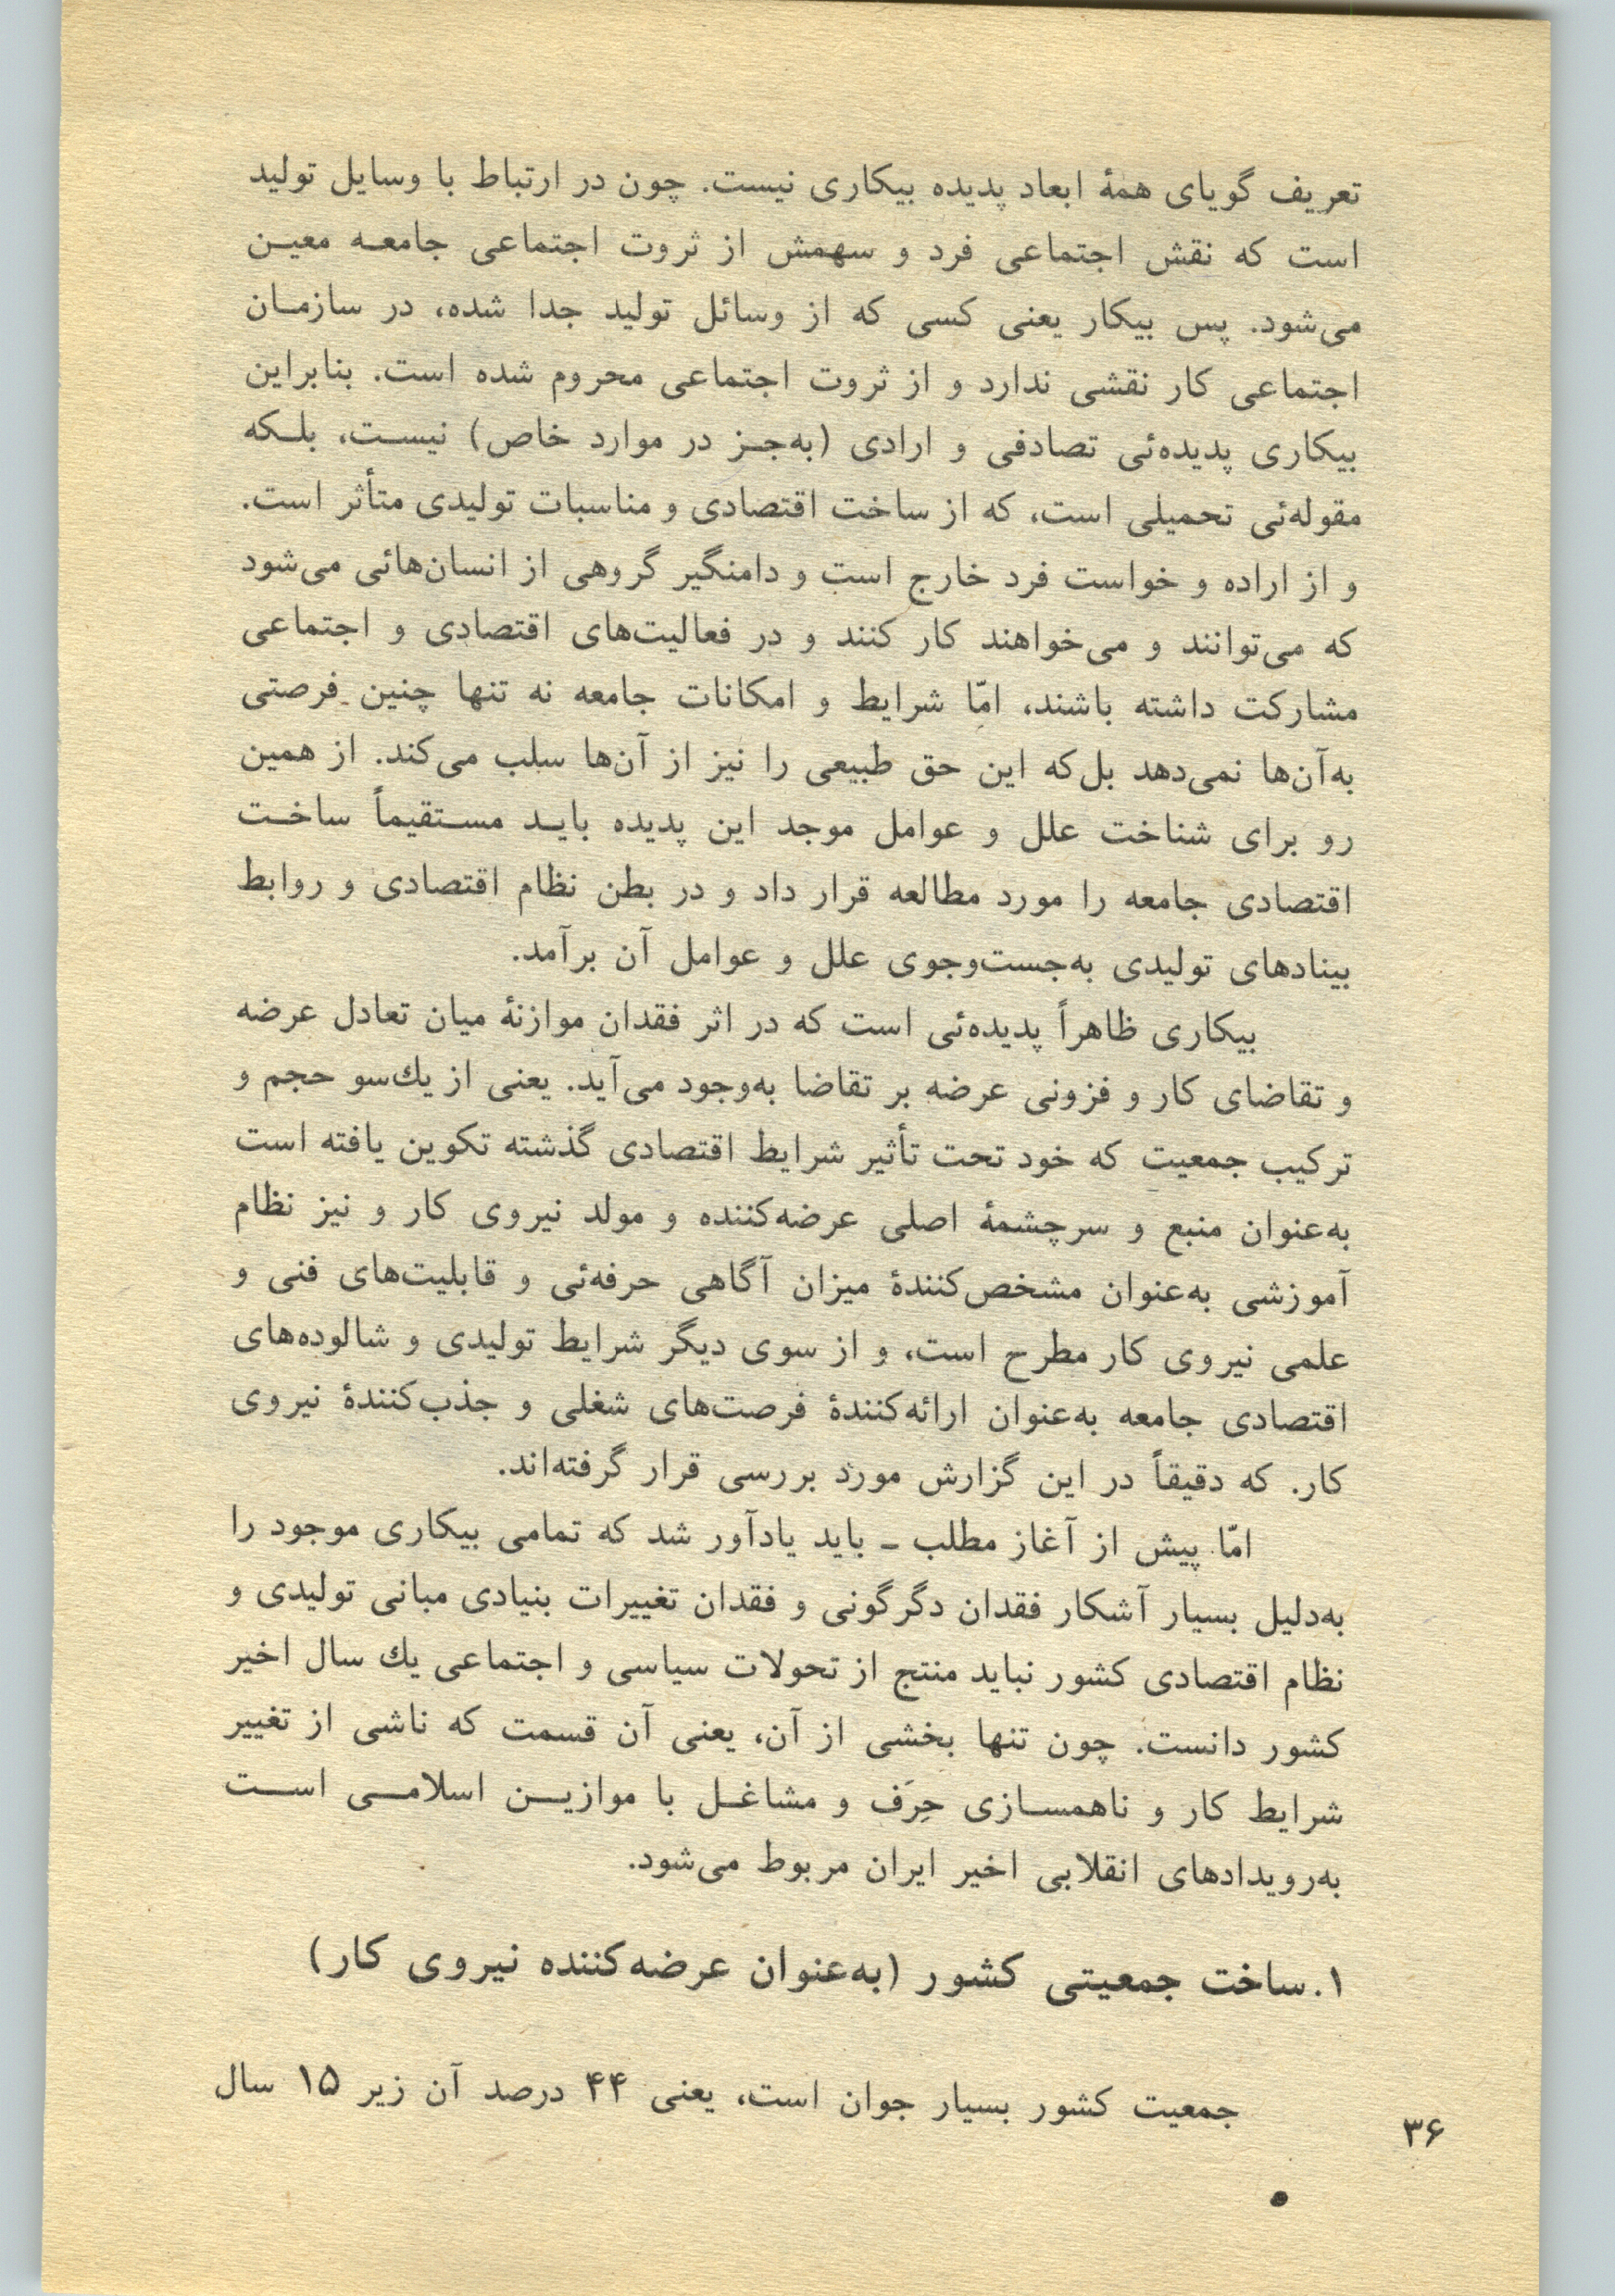 تعریف گویای همهٔ ابعاد پدیده بیکاری نیست. چون در ارتباط با وسایل تولید
است که نقش اجتماعی فرد و سهمش از ثروت اجتماعی جامعه معین
می‌شود. پس بیکار یعنی کسی که از وسائل تولید جدا شده، در سازمان
اجتماعی کار نقشی ندارد و از ثروت اجتماعی محروم شده است. بنابراین
بیکاری پدیده‌ئی تصادفی و ارادی (به‌جز در موارد خاص) نیست، بلکه
مقوله‌ئی تحمیلی است، که از ساخت اقتصادی و مناسبات تولیدی متأثر است.
و از اراده و خواست فرد خارج است و دامنگیر گروهی از انسان‌هائی می‌شود
که می‌توانند و می‌خواهند کار کنند و در فعالیت‌های اقتصادی و اجتماعی
مشارکت داشته باشند، امّا شرایط و امکانات جامعه نه تنها چنین فرصتی
به‌آن‌ها نمی‌دهد بل‌که این حق طبیعی را نیز از آن‌ها سلب می‌کند. از همین
رو برای شناخت علل و عوامل موجد این پدیده باید مستقیماً ساخت
اقتصادی جامعه را مورد مطالعه قرار داد و در بطن نظام اقتصادی و روابط
بینادهای تولیدی به‌جست‌وجوی علل و عوامل آن برآمد.
بیکاری ظاهراً پدیده‌ئی است که در اثر فقدان موازنهٔ میان تعادل عرضه
و تقاضای کار و فزونی عرضه بر تقاضا به‌وجود می‌آید. یعنی از یك‌سو حجم و
ترکیب جمعیت که خود تحت تأثیر شرایط اقتصادی گذشته تکوین یافته است
به‌عنوان منبع و سرچشمهٔ اصلی عرضه‌کننده و مولد نیروی کار و نیز نظام
آموزشی به‌عنوان مشخص‌کنندهٔ میزان آگاهی حرفه‌ئی و قابلیت‌های فنی و
علمی نیروی کار مطرح است، و از سوی دیگر شرایط تولیدی و شالوده‌های
اقتصادی جامعه به‌عنوان ارائه‌کنندهٔ فرصت‌های شغلی و جذب‌کنندهٔ نیروی
کار. که دقیقاً در این گزارش مورد بررسی قرار گرفته‌اند.
امّا پیش از آغاز مطلب ـ باید یادآور شد که تمامی بیکاری موجود را
به‌دلیل بسیار آشکار فقدان دگرگونی و فقدان تغییرات بنیادی مبانی تولیدی و
نظام اقتصادی کشور نباید منتج از تحولات سیاسی و اجتماعی یك سال اخیر
کشور دانست. چون تنها بخشی از آن، یعنی آن قسمت که ناشی از تغییر
شرایط کار و ناهمسازی حِرَف و مشاغل با موازین اسلامی است
به‌رویدادهای انقلابی اخیر ایران مربوط می‌شود.
۱. ساخت جمعیتی کشور (به‌عنوان عرضه‌کننده نیروی کار)
جمعیت کشور بسیار جوان است، یعنی ۴۴ درصد آن زیر ۱۵ سال
۳۶